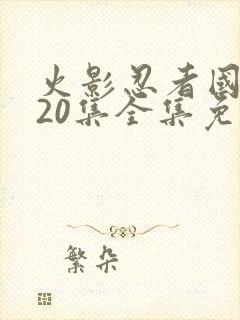 火影忍者國
20集全集免
繁朵